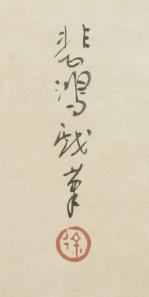 悲鴻戲筆
徐